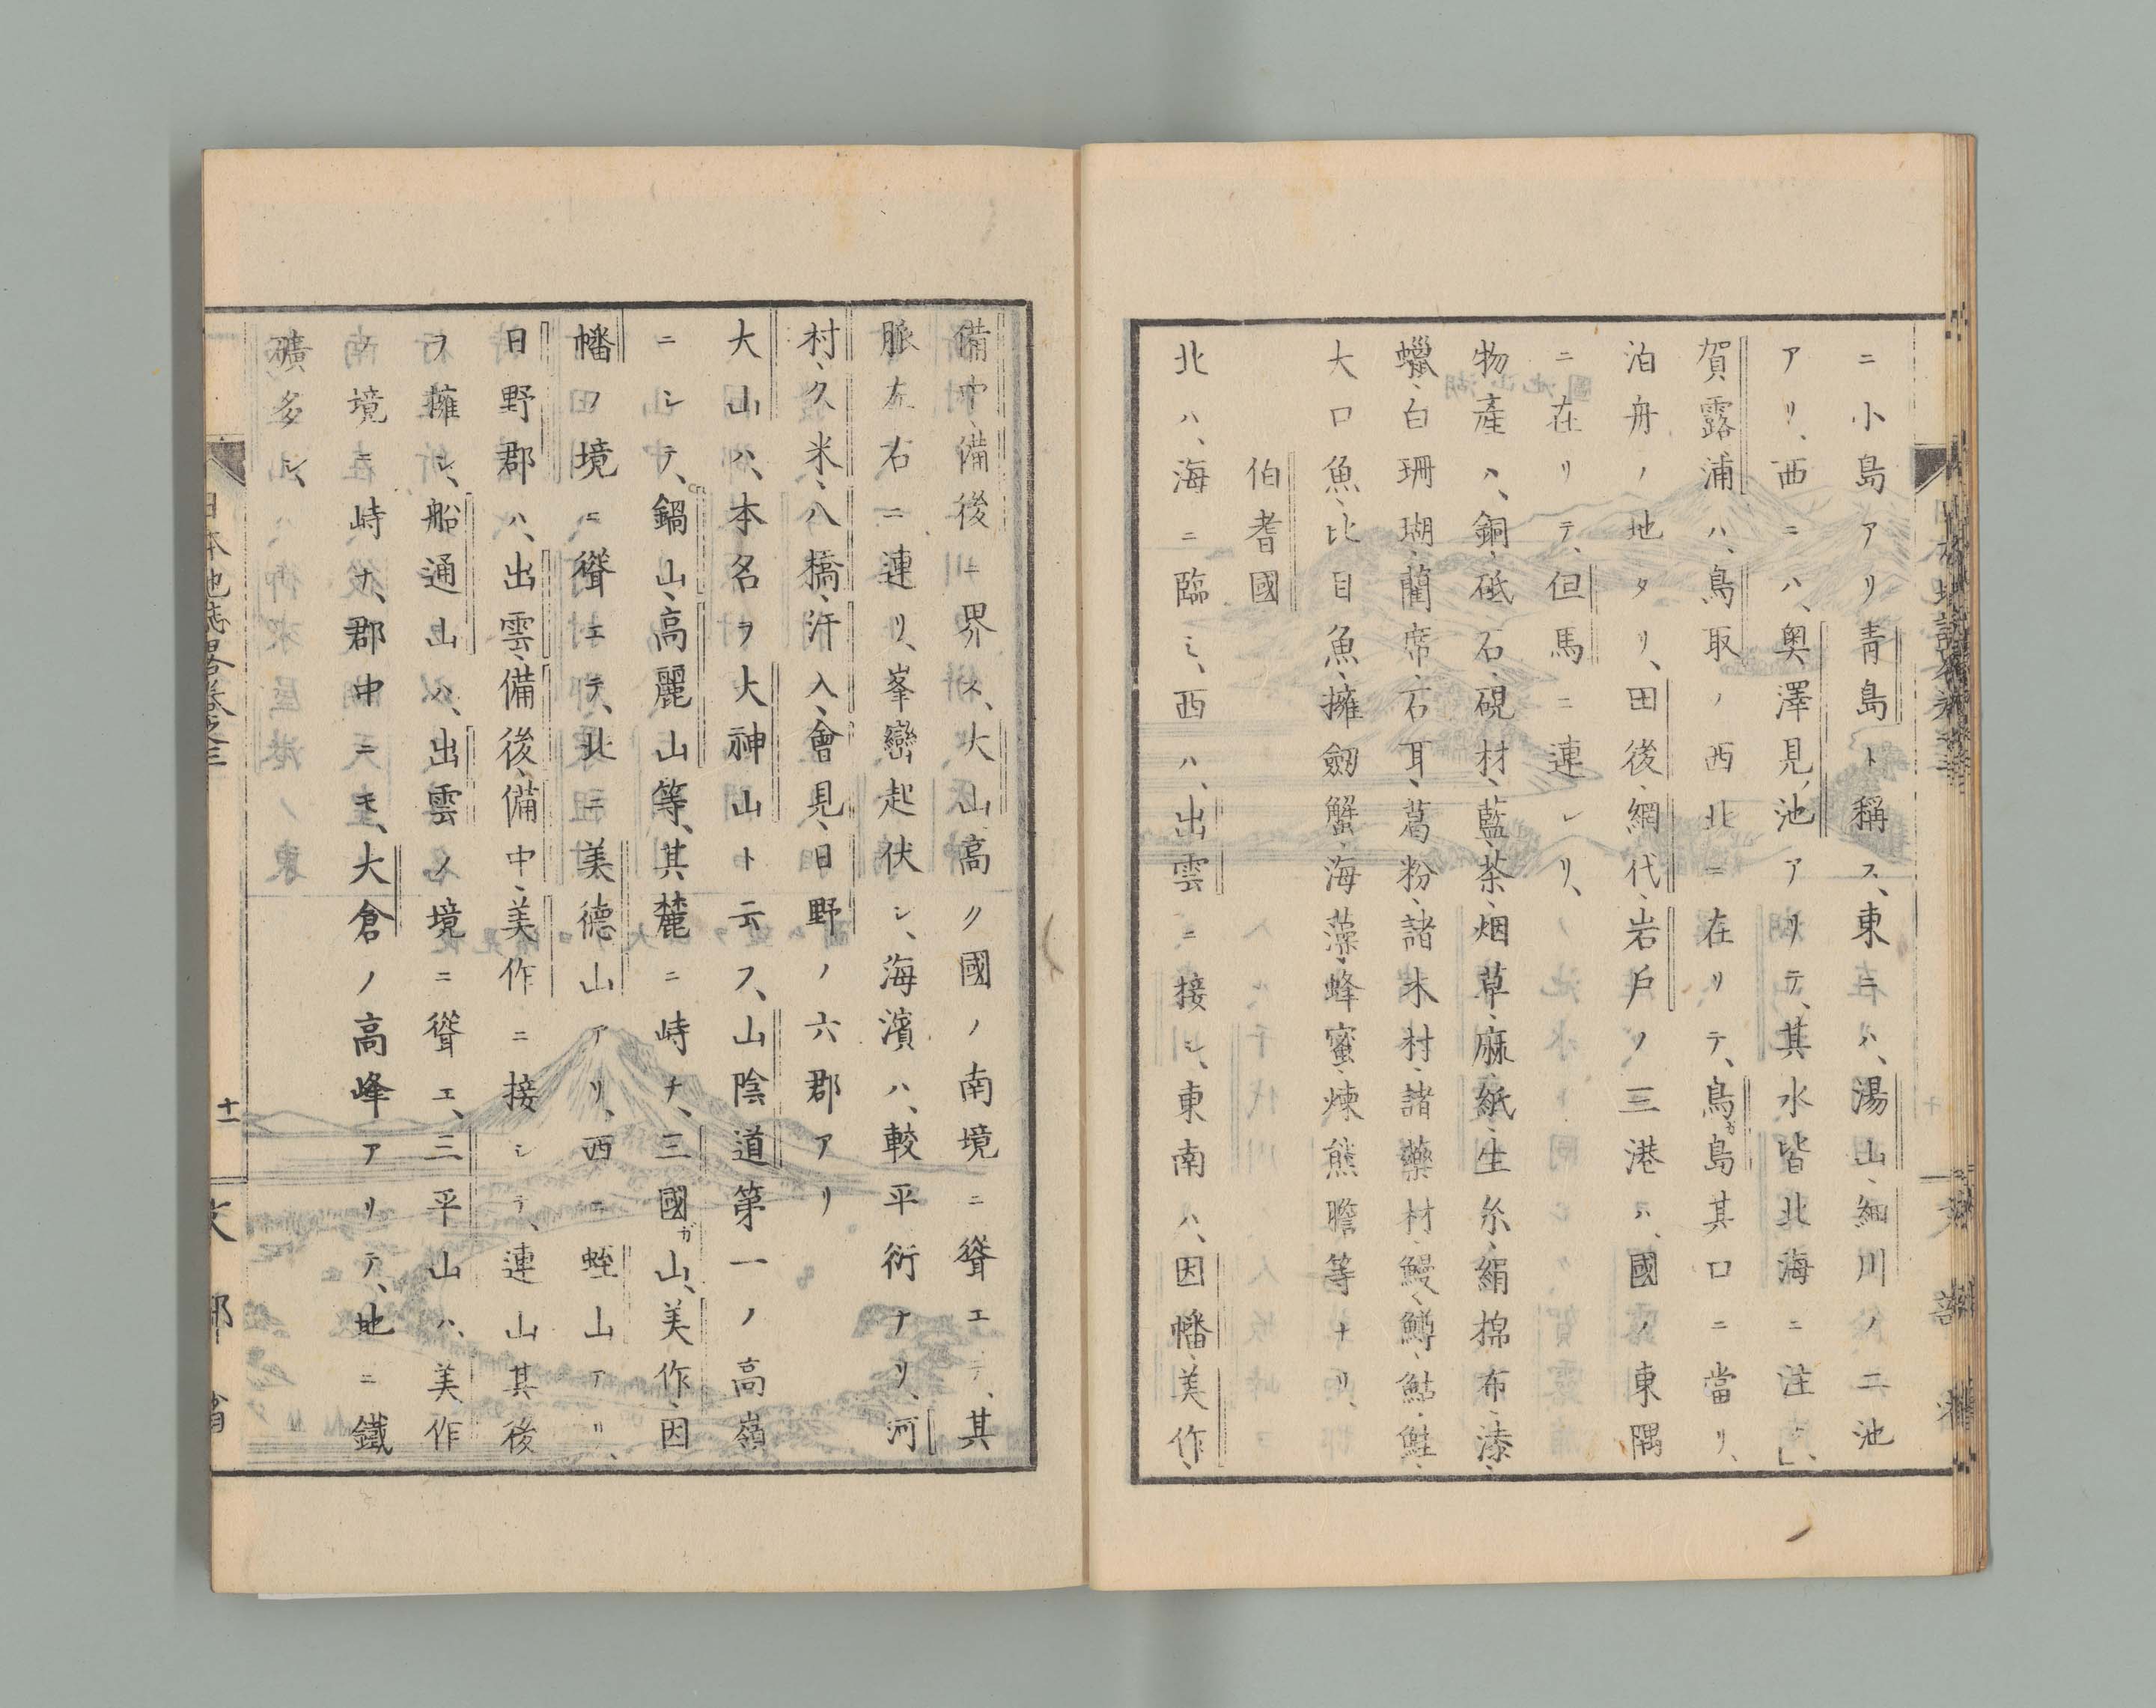 ニ小島アリ青島ト稱ス、東ニハ、湯山、細川ノ二池
アリ、西ニハ、奥澤見ノ池アリテ、其水皆北海ニ注ク、
賀露浦ハ、鳥取ノ西北ニ在リテ、鳥ガ島其口ニ當リ、
泊舟ノ地タリ、田後、網代、岩戶ノ三港ハ、國ノ東隅
ニ在リテ、但馬ニ連レリ、
物產ハ、銅、砥石、硯材、藍、茶、烟草、麻、紙、生糸、絹、棉布、漆、
蠟、白珊瑚、藺席、石耳、葛粉、諸木材、諸藥材、鰻、鱒、鮎、鮭、
大口魚、比目魚、擁劔蟹、海藻、蜂蜜、煉熊膽等ナリ、
伯耆國
北ハ、海ニ臨ミ、西ハ、出雲ニ接シ、東南ハ、因幡、美作、
備中、備後ニ界ス、大山高ク國ノ南境ニ聳エテ、其
脈左右ニ連リ、峯巒起伏シ、海濱ハ、較平衍ナリ、河
村、久米、八橋、汗入、會見、日野ノ六郡アリ
大山ハ、本名ヲ大神山ト云フ、山陰道第一ノ高嶺
ニシテ、鍋山、高麗山等、其麓ニ峙チ、三國ガ山、美作、因
幡ノ境ニ聳エテ、北ニ美德山アリ、西ニ蛭山アリ、
日野郡ハ、出雲、備後、備中、美作ニ接シテ、連山其後
ヲ擁シ、船通山ハ、出雲ノ境ニ聳エ、三平山ハ、美作
ノ境ニ峙チ、郡中ニモ、大倉ノ高峰アリテ、地ニ鐵
礦多シ、
日本地誌略卷之三
十一
文部省